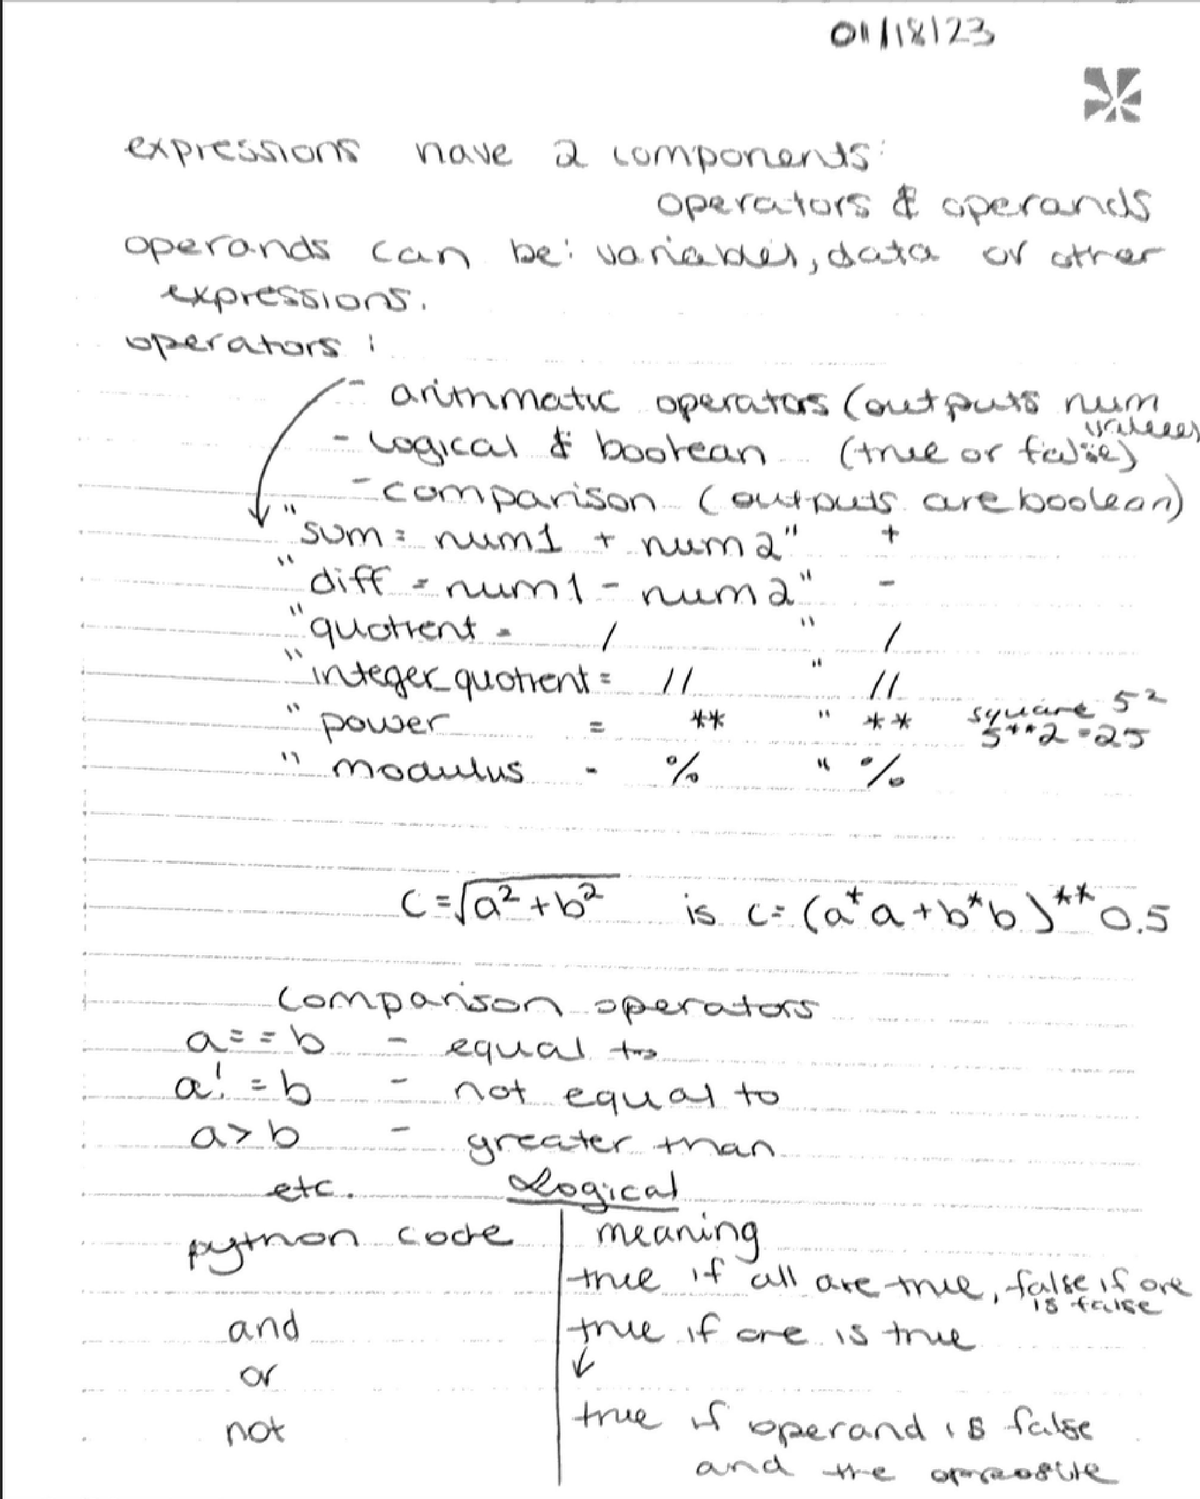 01/18/23
expressions have 2 components:
operators & operands
operands can be: variables, data or other
expressions.
operators :
- arithmatic operators (outputs num values)
- Logical & boolean (true or false)
- comparison (outputs are boolean)
"sum = num1 + num2" +
"diff = num1 - num2" -
"quotient = / " /
"integer_quotient = // " //
"power = ** " ** square 5²
5**2=25
"modulus - % " %
c = √a² + b² is c = (a*a + b*b)**0.5
comparison operators
a == b - equal to
a! = b - not equal to
a > b - greater than
etc. Logical
python code meaning
and true if all are true, false if one is false
or true if one is true
↓
not true if operand is false
and the opposite